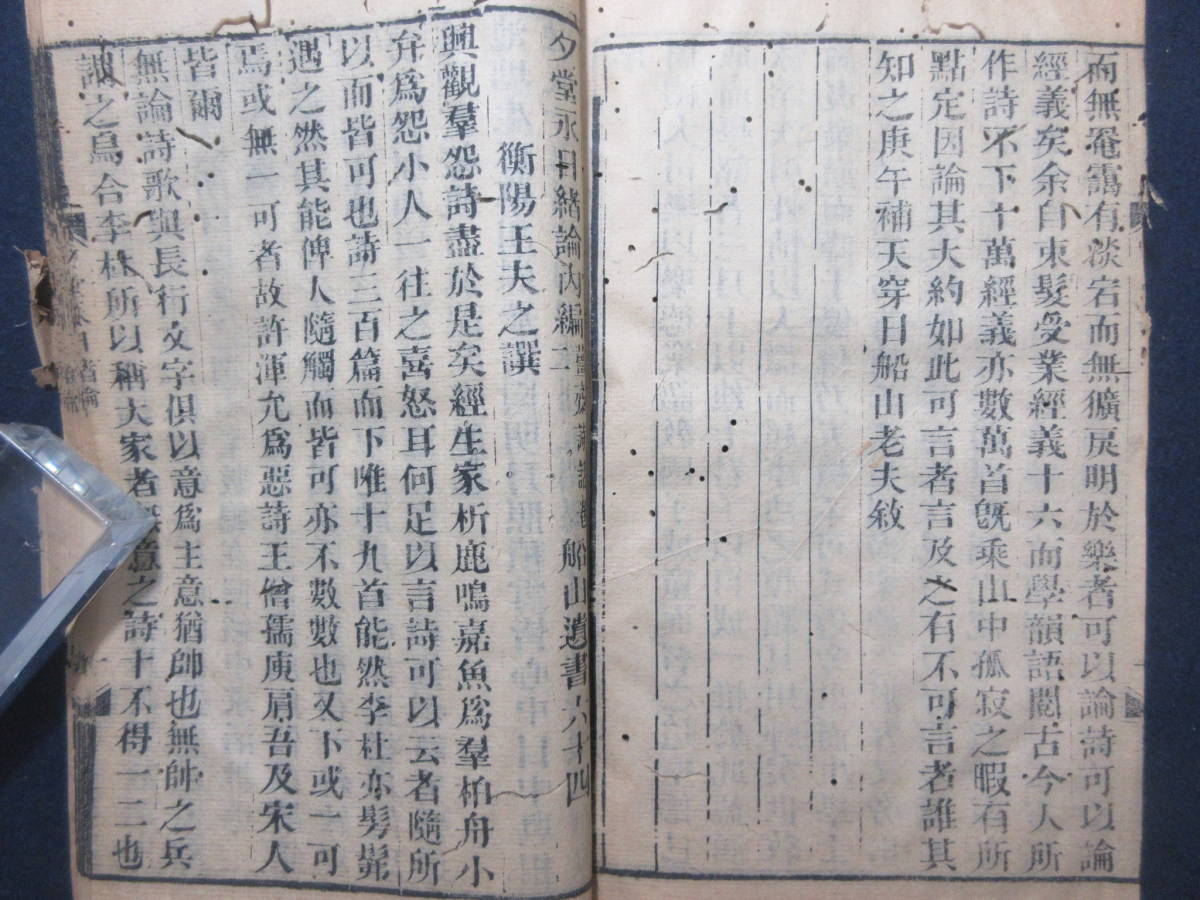 而無罨靄有淡宕而無獷戾明於樂者可以論詩可以論
經義矣余自束髮受業經義十六而學韻語閱古今人所
作詩不下十萬經義亦數萬首旣乘山中孤寂之暇有所
點定因論其大約如此可言者言及之有不可言者誰其
知之庚午補天穿日船山老夫敘
夕堂永日緒論內編 船山遺書六十四
衡陽王夫之譔
興觀羣怨詩盡於是矣經生家析鹿鳴嘉魚爲羣柏舟小
弁爲怨小人一往之喜怒耳何足以言詩可以云者隨所
以而皆可也詩三百篇而下唯十九首能然李杜亦髣髴
遇之然其能俾人隨觸而皆可亦不數數也又下或一可
焉或無一可者故許渾允爲惡詩王僧孺庾肩吾及宋人
皆爾
無論詩歌與長行文字俱以意爲主意猶帥也無帥之兵
謂之烏合李杜所以稱大家者無意之詩十不得一二也